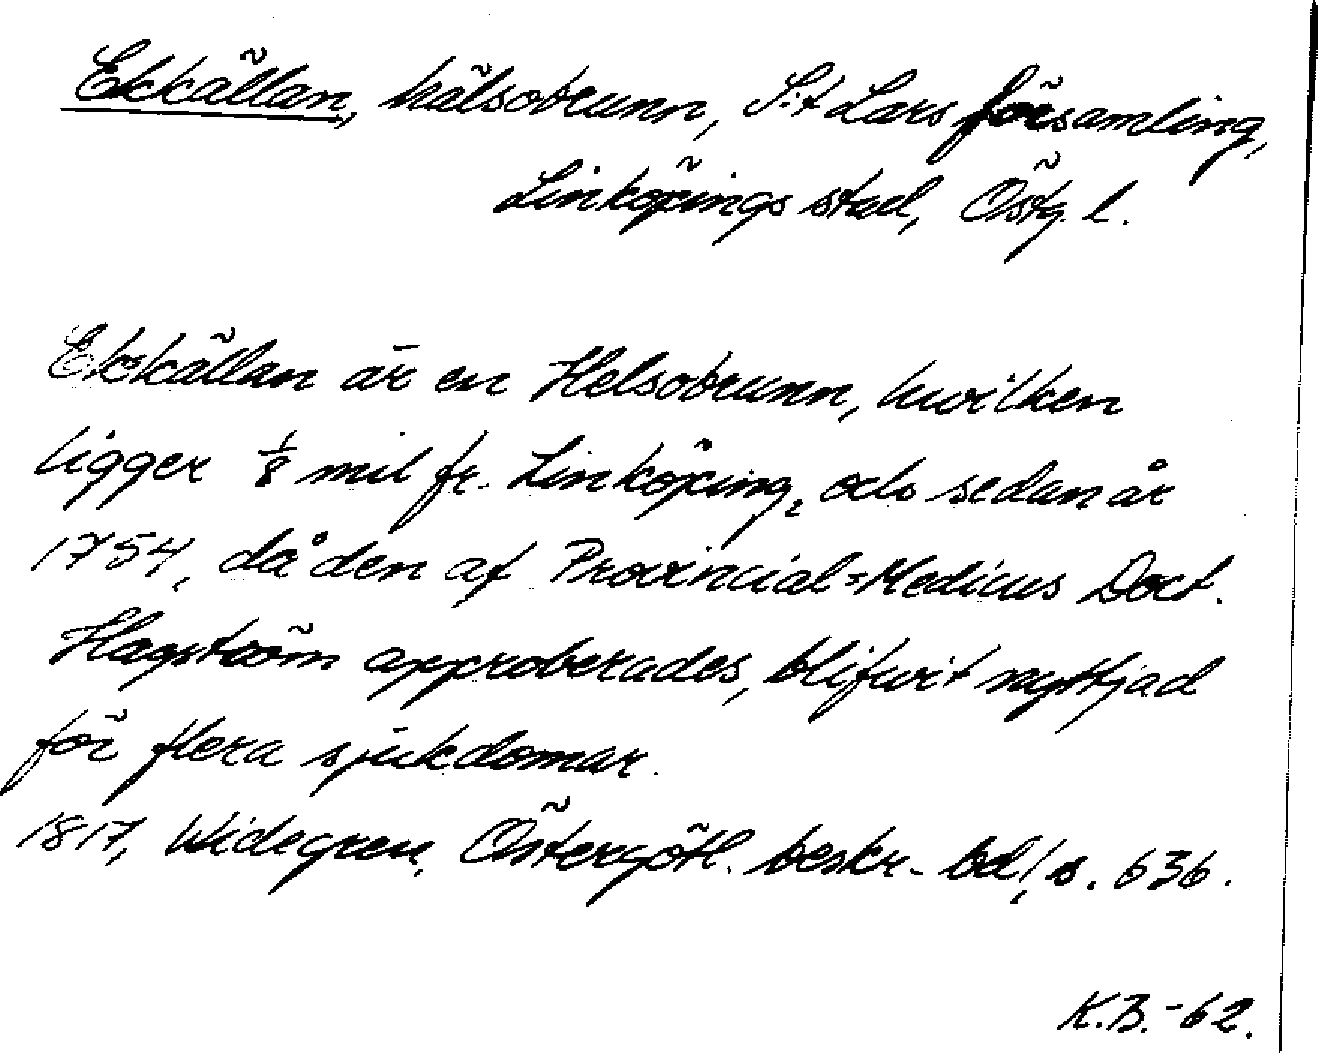 Ekkällan, hälsobrunn, S:t Lars församling,
Linköpings stad, Östg. l.
Ekkällan är en Helsobrunn, hwilken
ligger 1/8 mil fr. Linköping, och sedan år
1754, då den af Provincial=Medicus Doct.
Hagström approberades, blifwit nyttjad
för flera sjukdomar.
1817, Widegren, Östergötl. beskr. bd 1, s. 636.
K.B. -62.